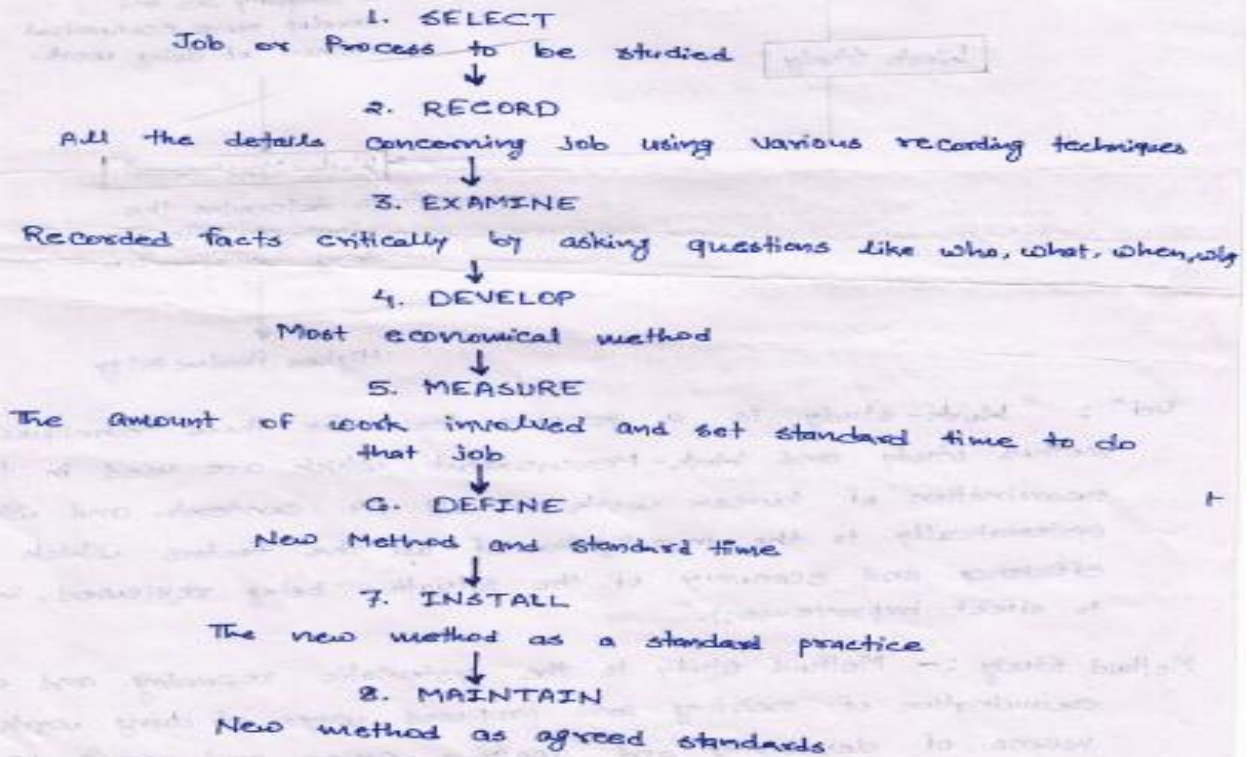 1. SELECT
Job or Process to be studied
↓
2. RECORD
All the details concerning Job using various recording techniques
↓
3. EXAMINE
Recorded facts critically by asking questions like who, what, when,
↓
4. DEVELOP
Most economical method
↓
5. MEASURE
The amount of work involved and set standard time to do
that job
↓
6. DEFINE
New Method and standard time
↓
7. INSTALL
The new method as a standard practice
↓
8. MAINTAIN
New method as agreed standards